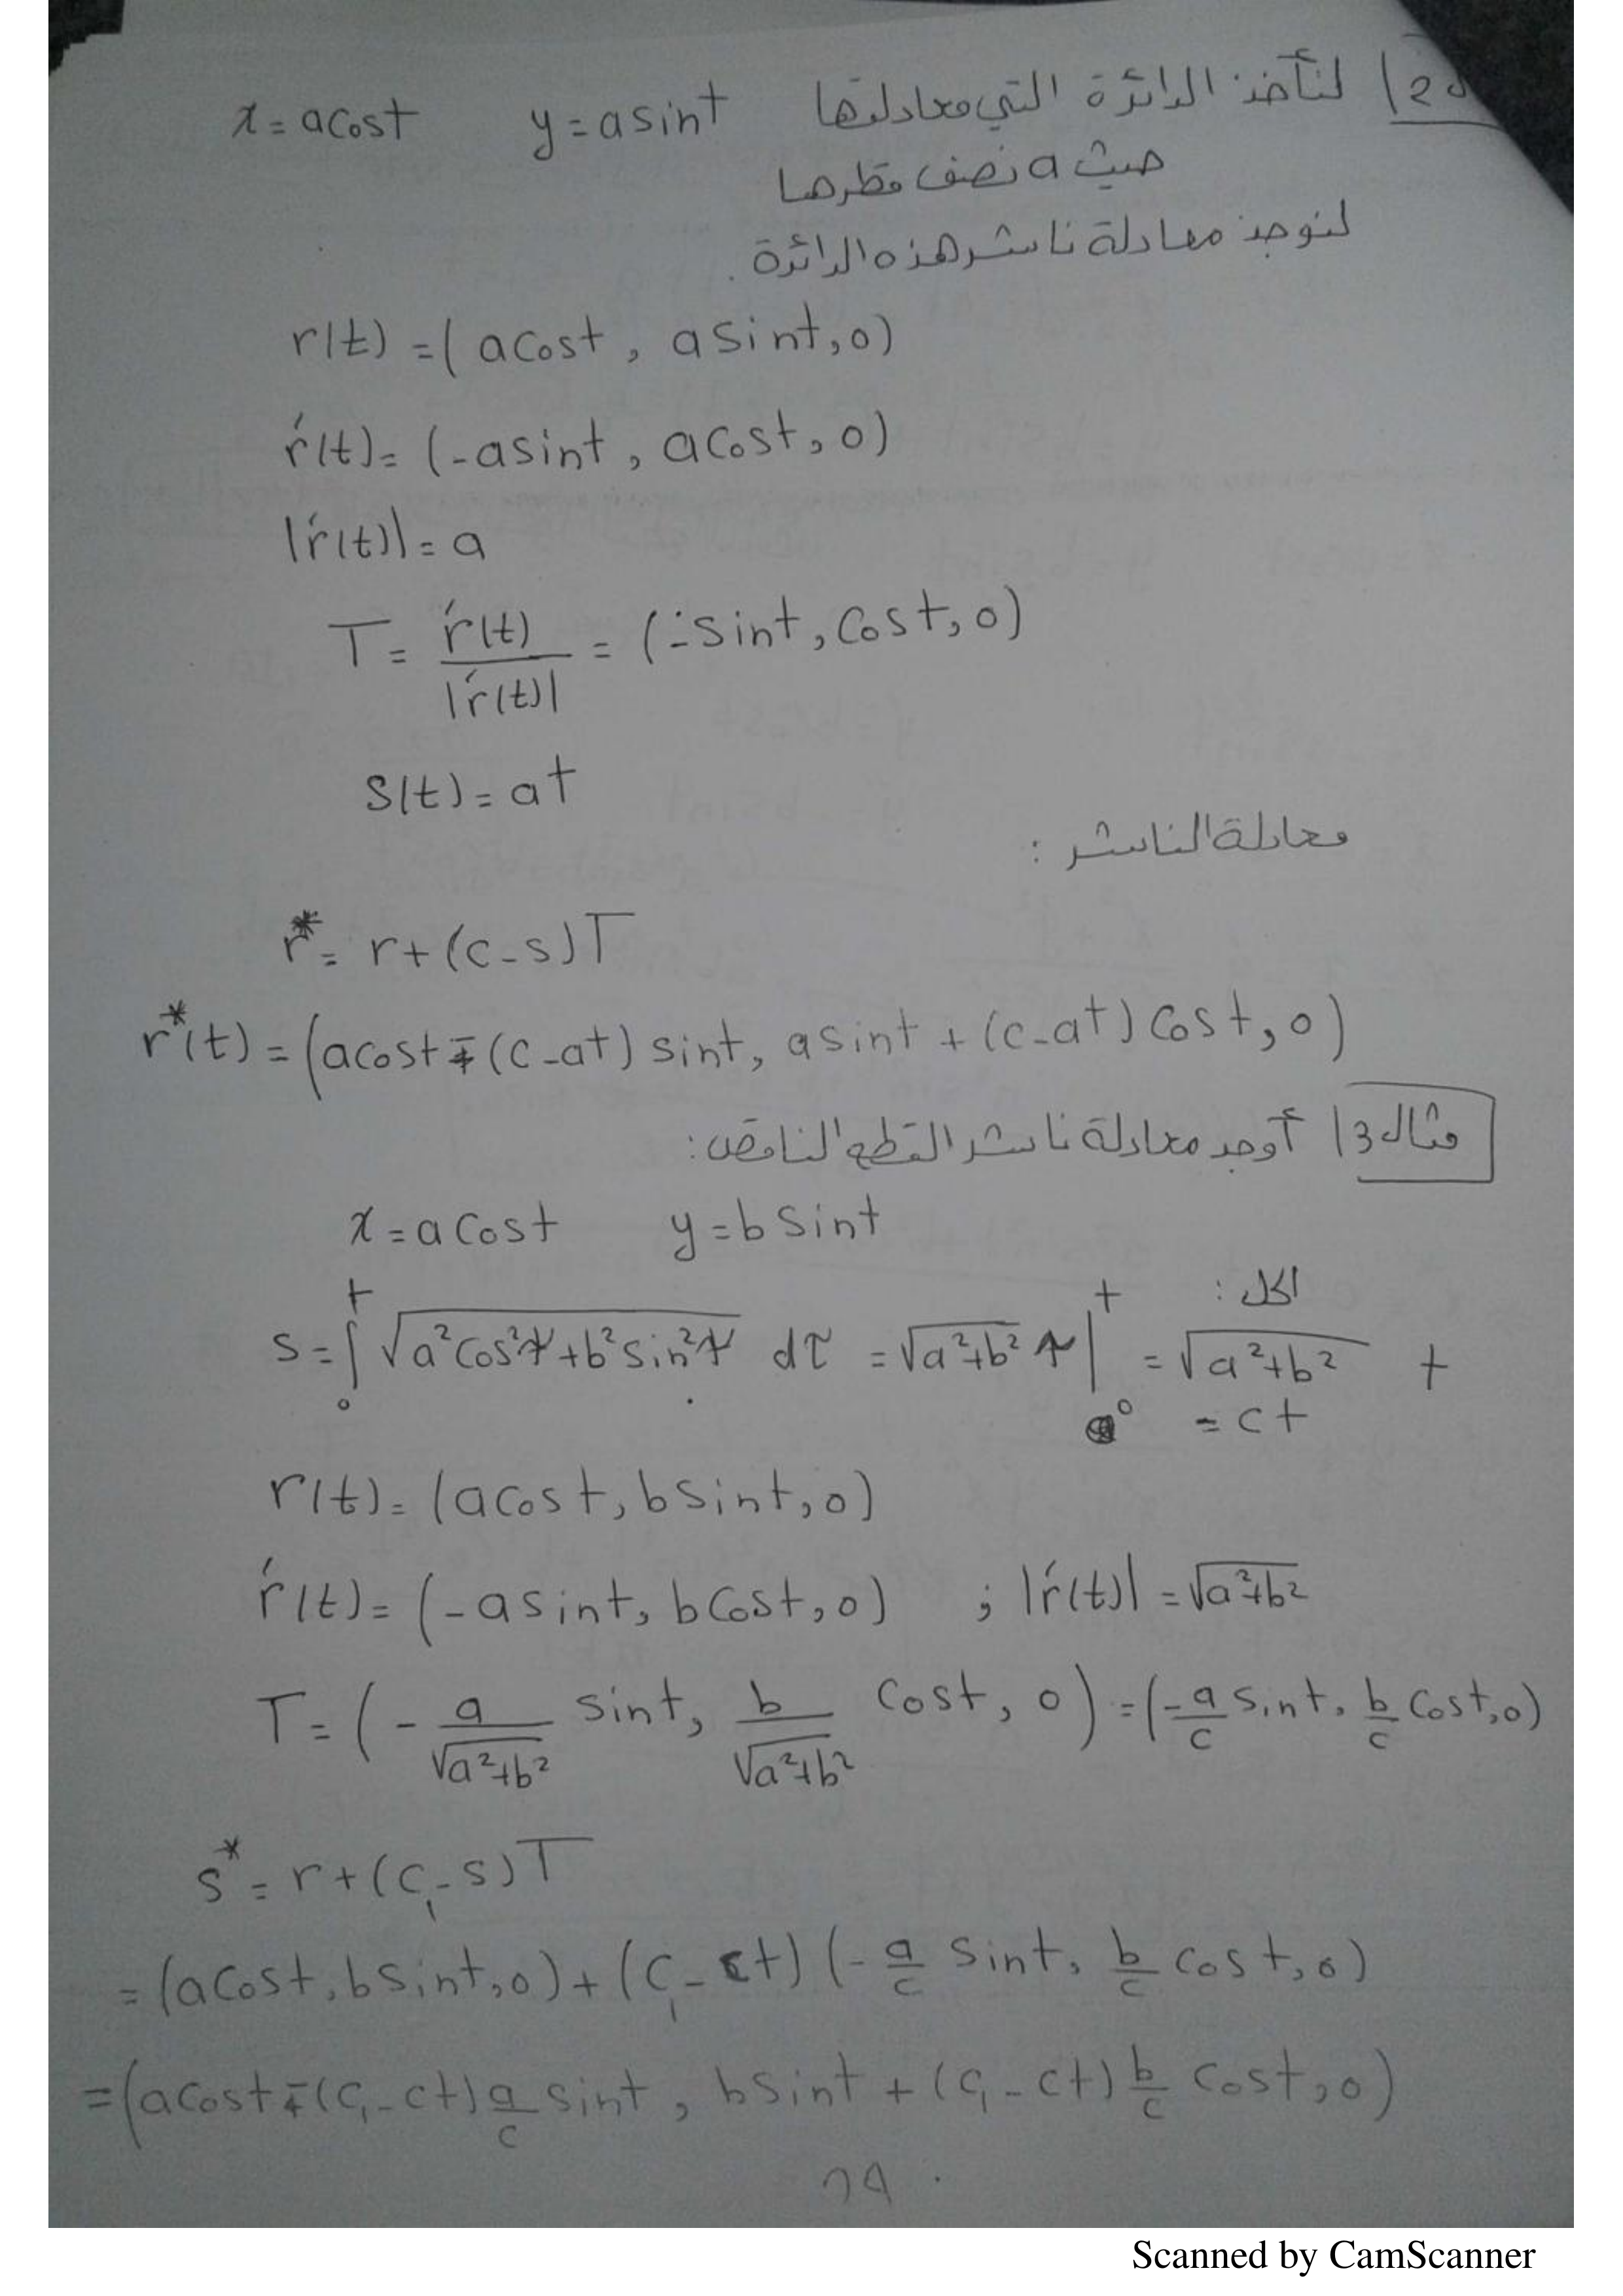 2) لنأخذ الدائرة التي معادلتها x = a cost y = a sint
حيث a نصف قطرها
لنوجد معادلة ناشر هذه الدائرة.
r(t) = (a cost, a sint, 0)
ŕ(t) = (-a sint, a cost, 0)
|ŕ(t)| = a
T = ŕ(t)/|ŕ(t)| = (-sint, cost, 0)
s(t) = at
معادلة الناشر :
r* = r + (c - s)T
r*(t) = (a cost - (c - at) sint, a sint + (c - at) cost, 0)
مثال 3) أوجد معادلة ناشر القطع الناقص:
x = a cost y = b sint
الحل :
s = ∫₀ᵗ √(a² cos²τ + b² sin²τ) dτ = √(a²+b²) τ |₀ᵗ = √(a²+b²) t
= ct
r(t) = (a cost, b sint, 0)
ŕ(t) = (-a sint, b cost, 0) ; |ŕ(t)| = √(a²+b²)
T = (- a/√(a²+b²) sint, b/√(a²+b²) cost, 0) = (-a/c sint, b/c cost, 0)
s* = r + (c₁ - s)T
= (a cost, b sint, 0) + (c₁ - ct) (- a/c sint, b/c cost, 0)
= (a cost - (c₁ - ct) a/c sint, b sint + (c₁ - ct) b/c cost, 0)
Scanned by CamScanner